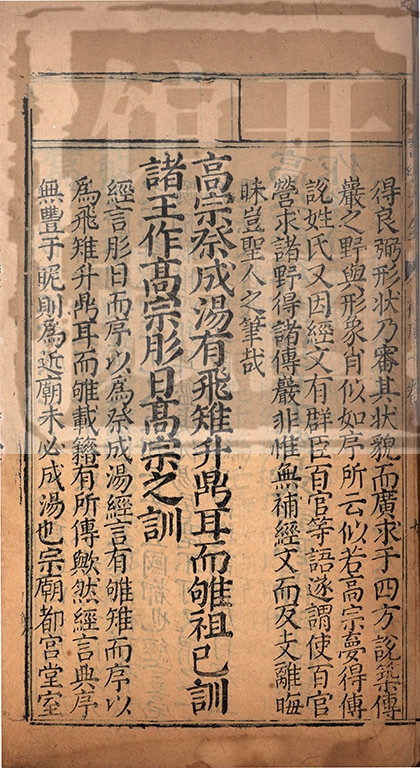 得良弼形状乃審其状貌而廣求于四方說築傅
巖之野與形象肖似如序所云似若高宗夢得傅
說姓氏又因經文有群臣百官等語遂謂使百官
營求諸野得諸傅巖非惟無補經文而反支離晦
昧豈聖人之筆哉
高宗祭成湯有飛雉升鼎耳而雊祖已訓
諸王作高宗肜日高宗之訓
經言肜日而序以為祭成湯經言有雊雉而序以
為飛雉升鼎耳而雊載籍有所傳歟然經言典序
無豐于昵則為近廟未必成湯也宗廟都宮堂室